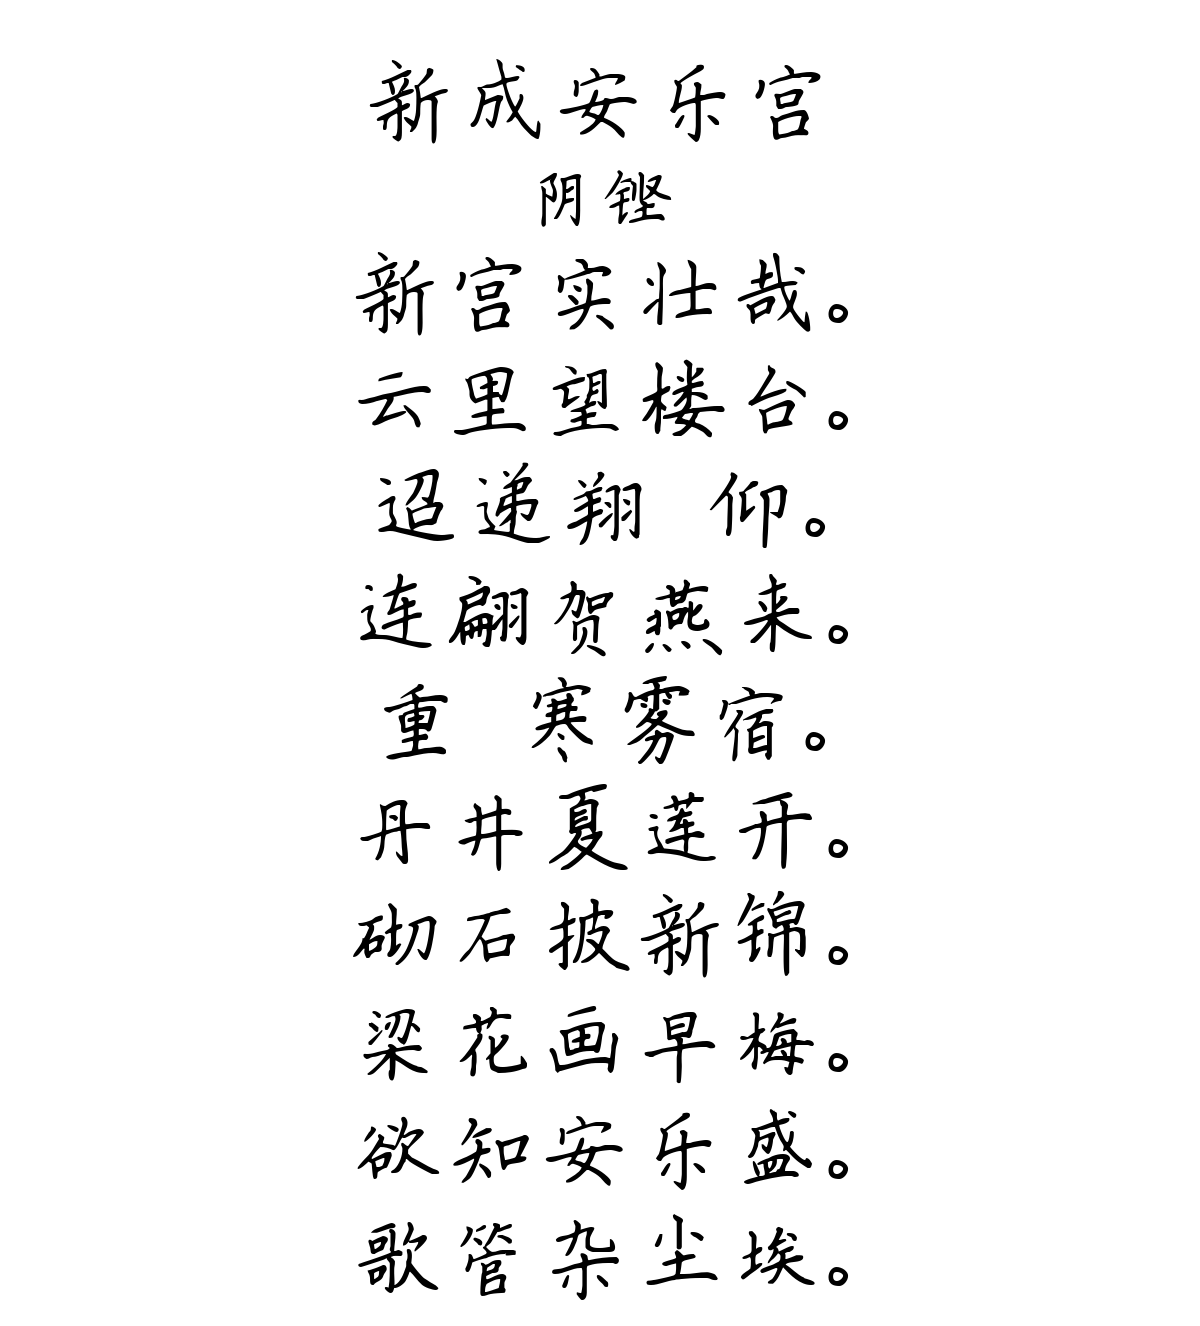 新成安乐宫
阴铿
新宫实壮哉。
云里望楼台。
迢递翔 仰。
连翩贺燕来。
重 寒雾宿。
丹井夏莲开。
砌石披新锦。
梁花画早梅。
欲知安乐盛。
歌管杂尘埃。